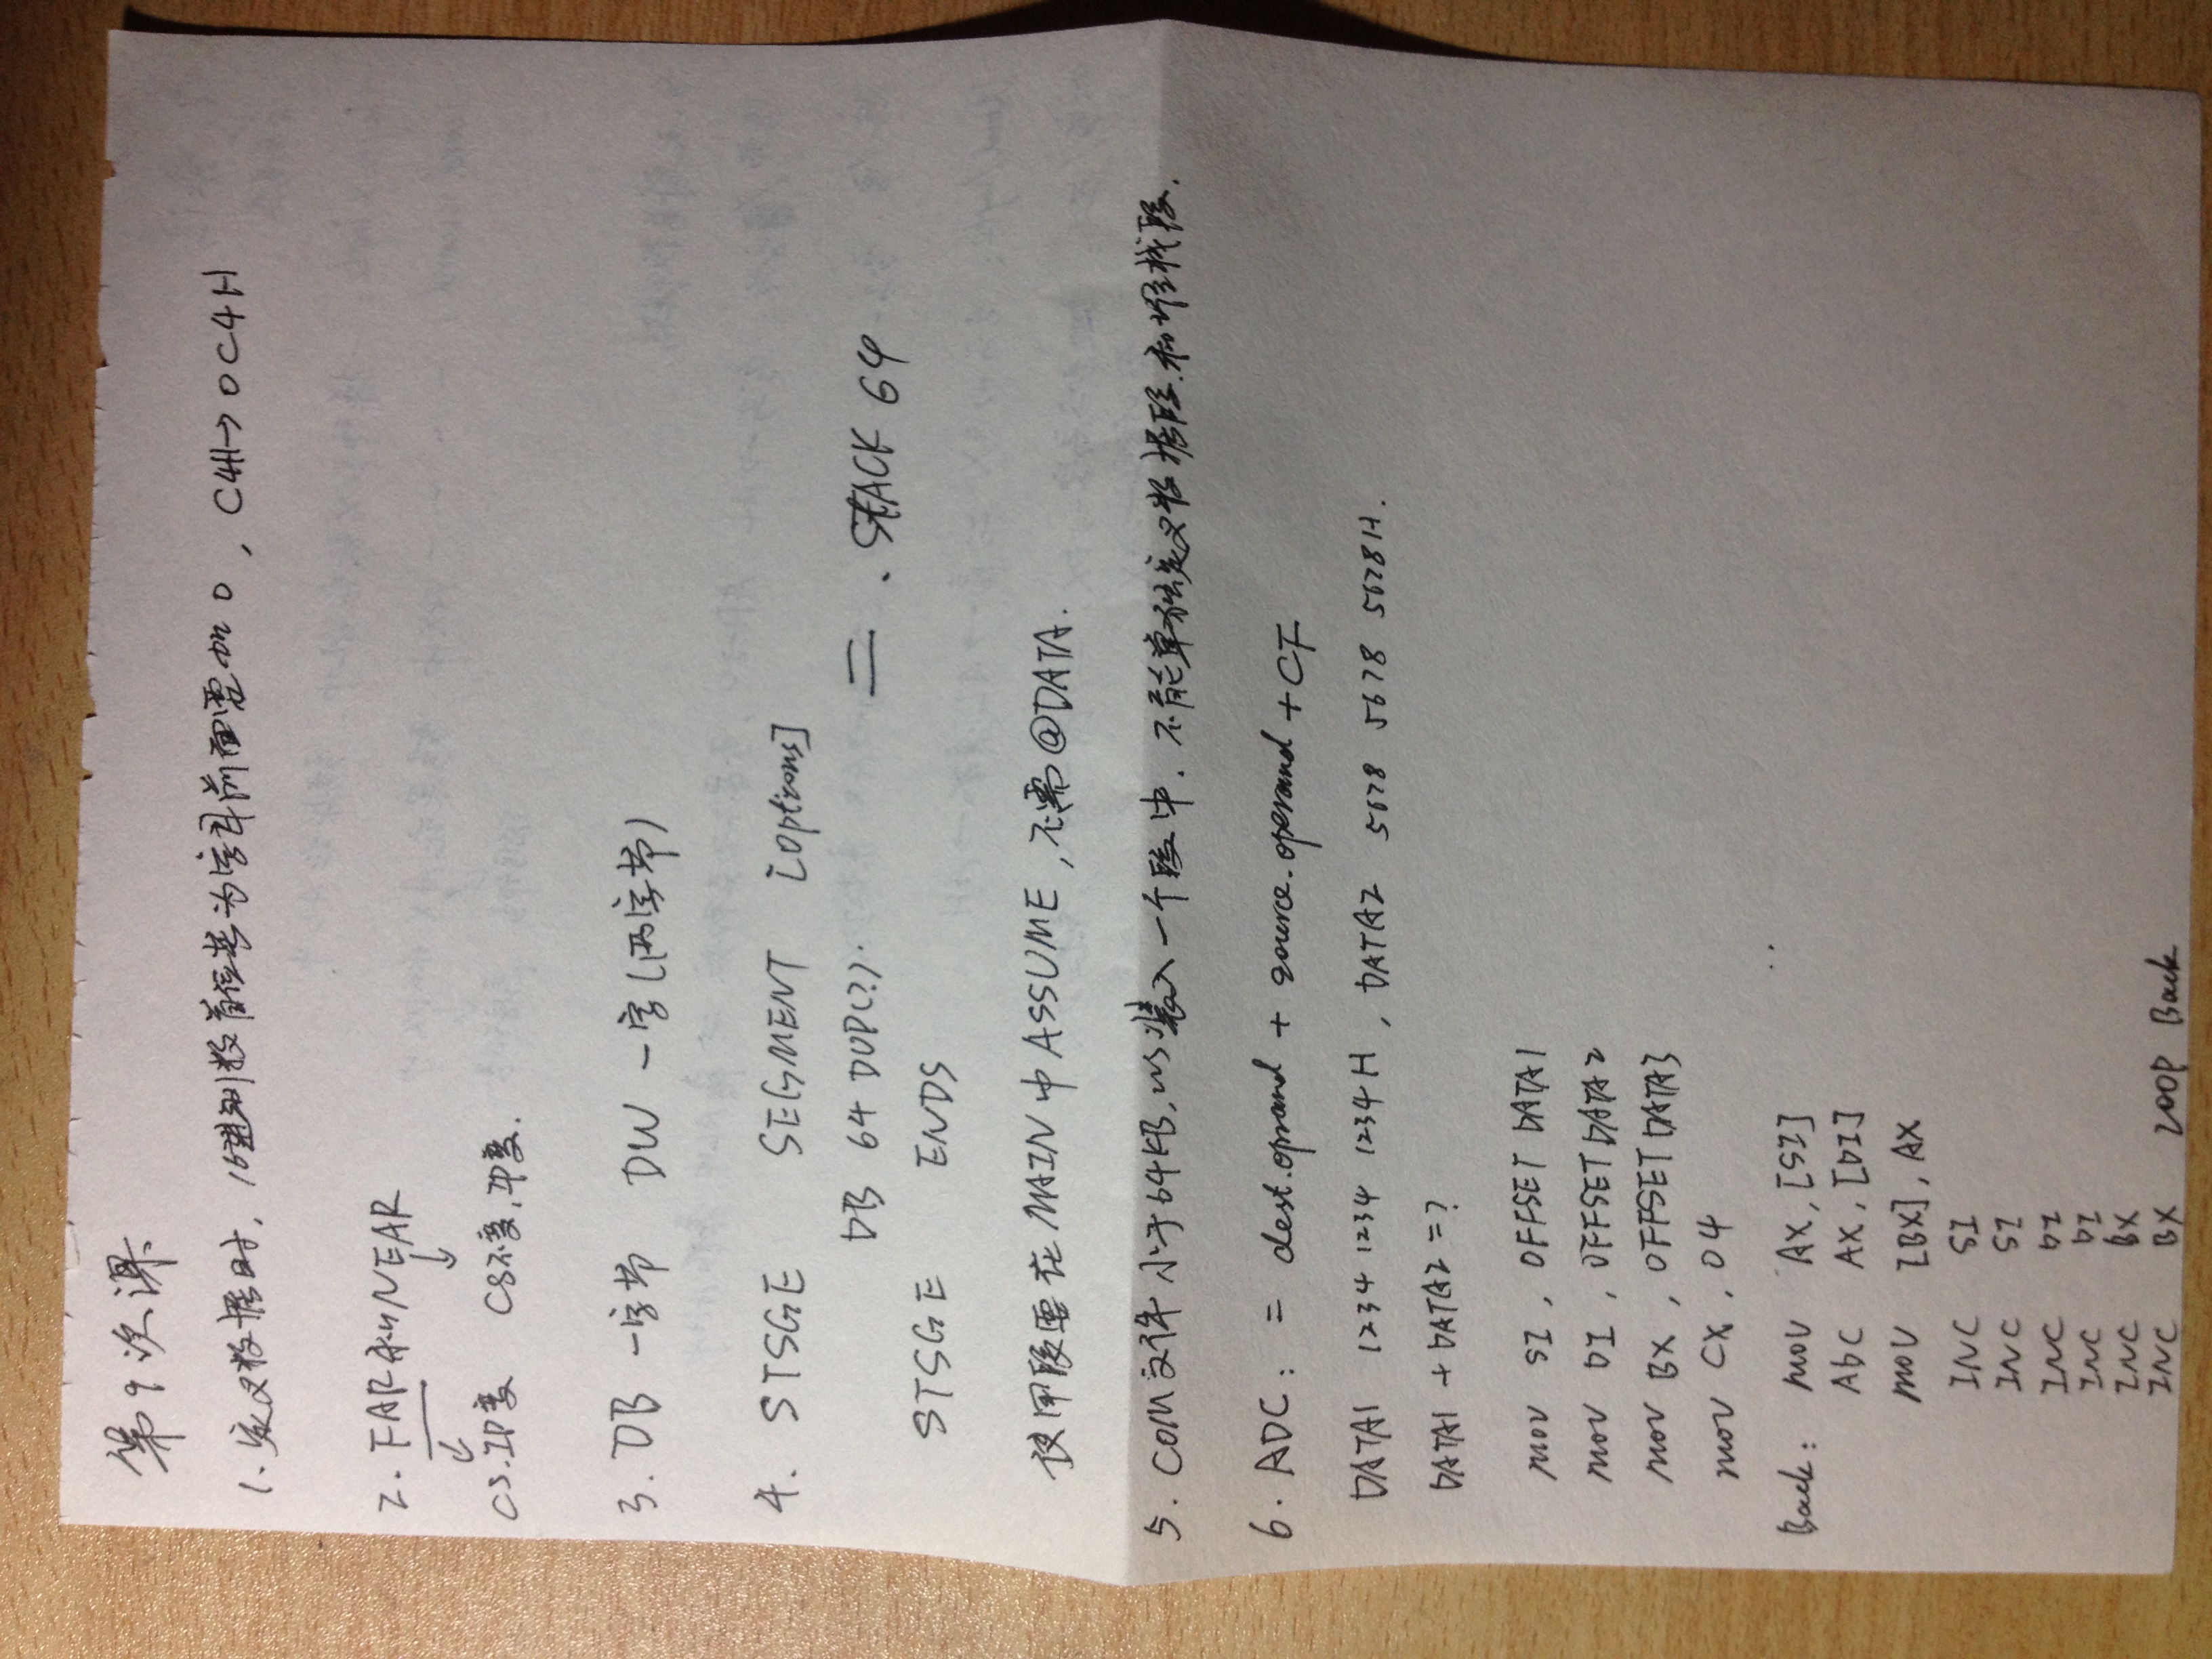 第9次课
1. 定义数据时, 16进制数首位若为字母前面要加0, C4H→0C4H
2. FAR和NEAR
CS.IP变 CS不变,IP变.
3. DB 一字节 DW 一字(两字节)
4. STSGE SEGMENT [options]
DB 64 DUP(?). = .STACK 64
STSGE ENDS
使用段要在MAIN中ASSUME,不需@DATA.
5. COM文件 小于64KB, 装入一个段中. 不能单独定义数据段.和堆栈段.
6. ADC: = dest.oprand + source.operand + CF
DATA1 1234 1234 1234H, DATA2 5678 5678 5678H.
DATA1 + DATA2 = ?
mov SI, OFFSET DATA1
mov DI, OFFSET DATA2
mov BX, OFFSET DATA3
mov CX, 04
Back: mov AX, [SI]
ADC AX, [DI]
mov [BX], AX
INC SI
INC SI
INC DI
INC DI
INC BX
INC BX LOOP Back